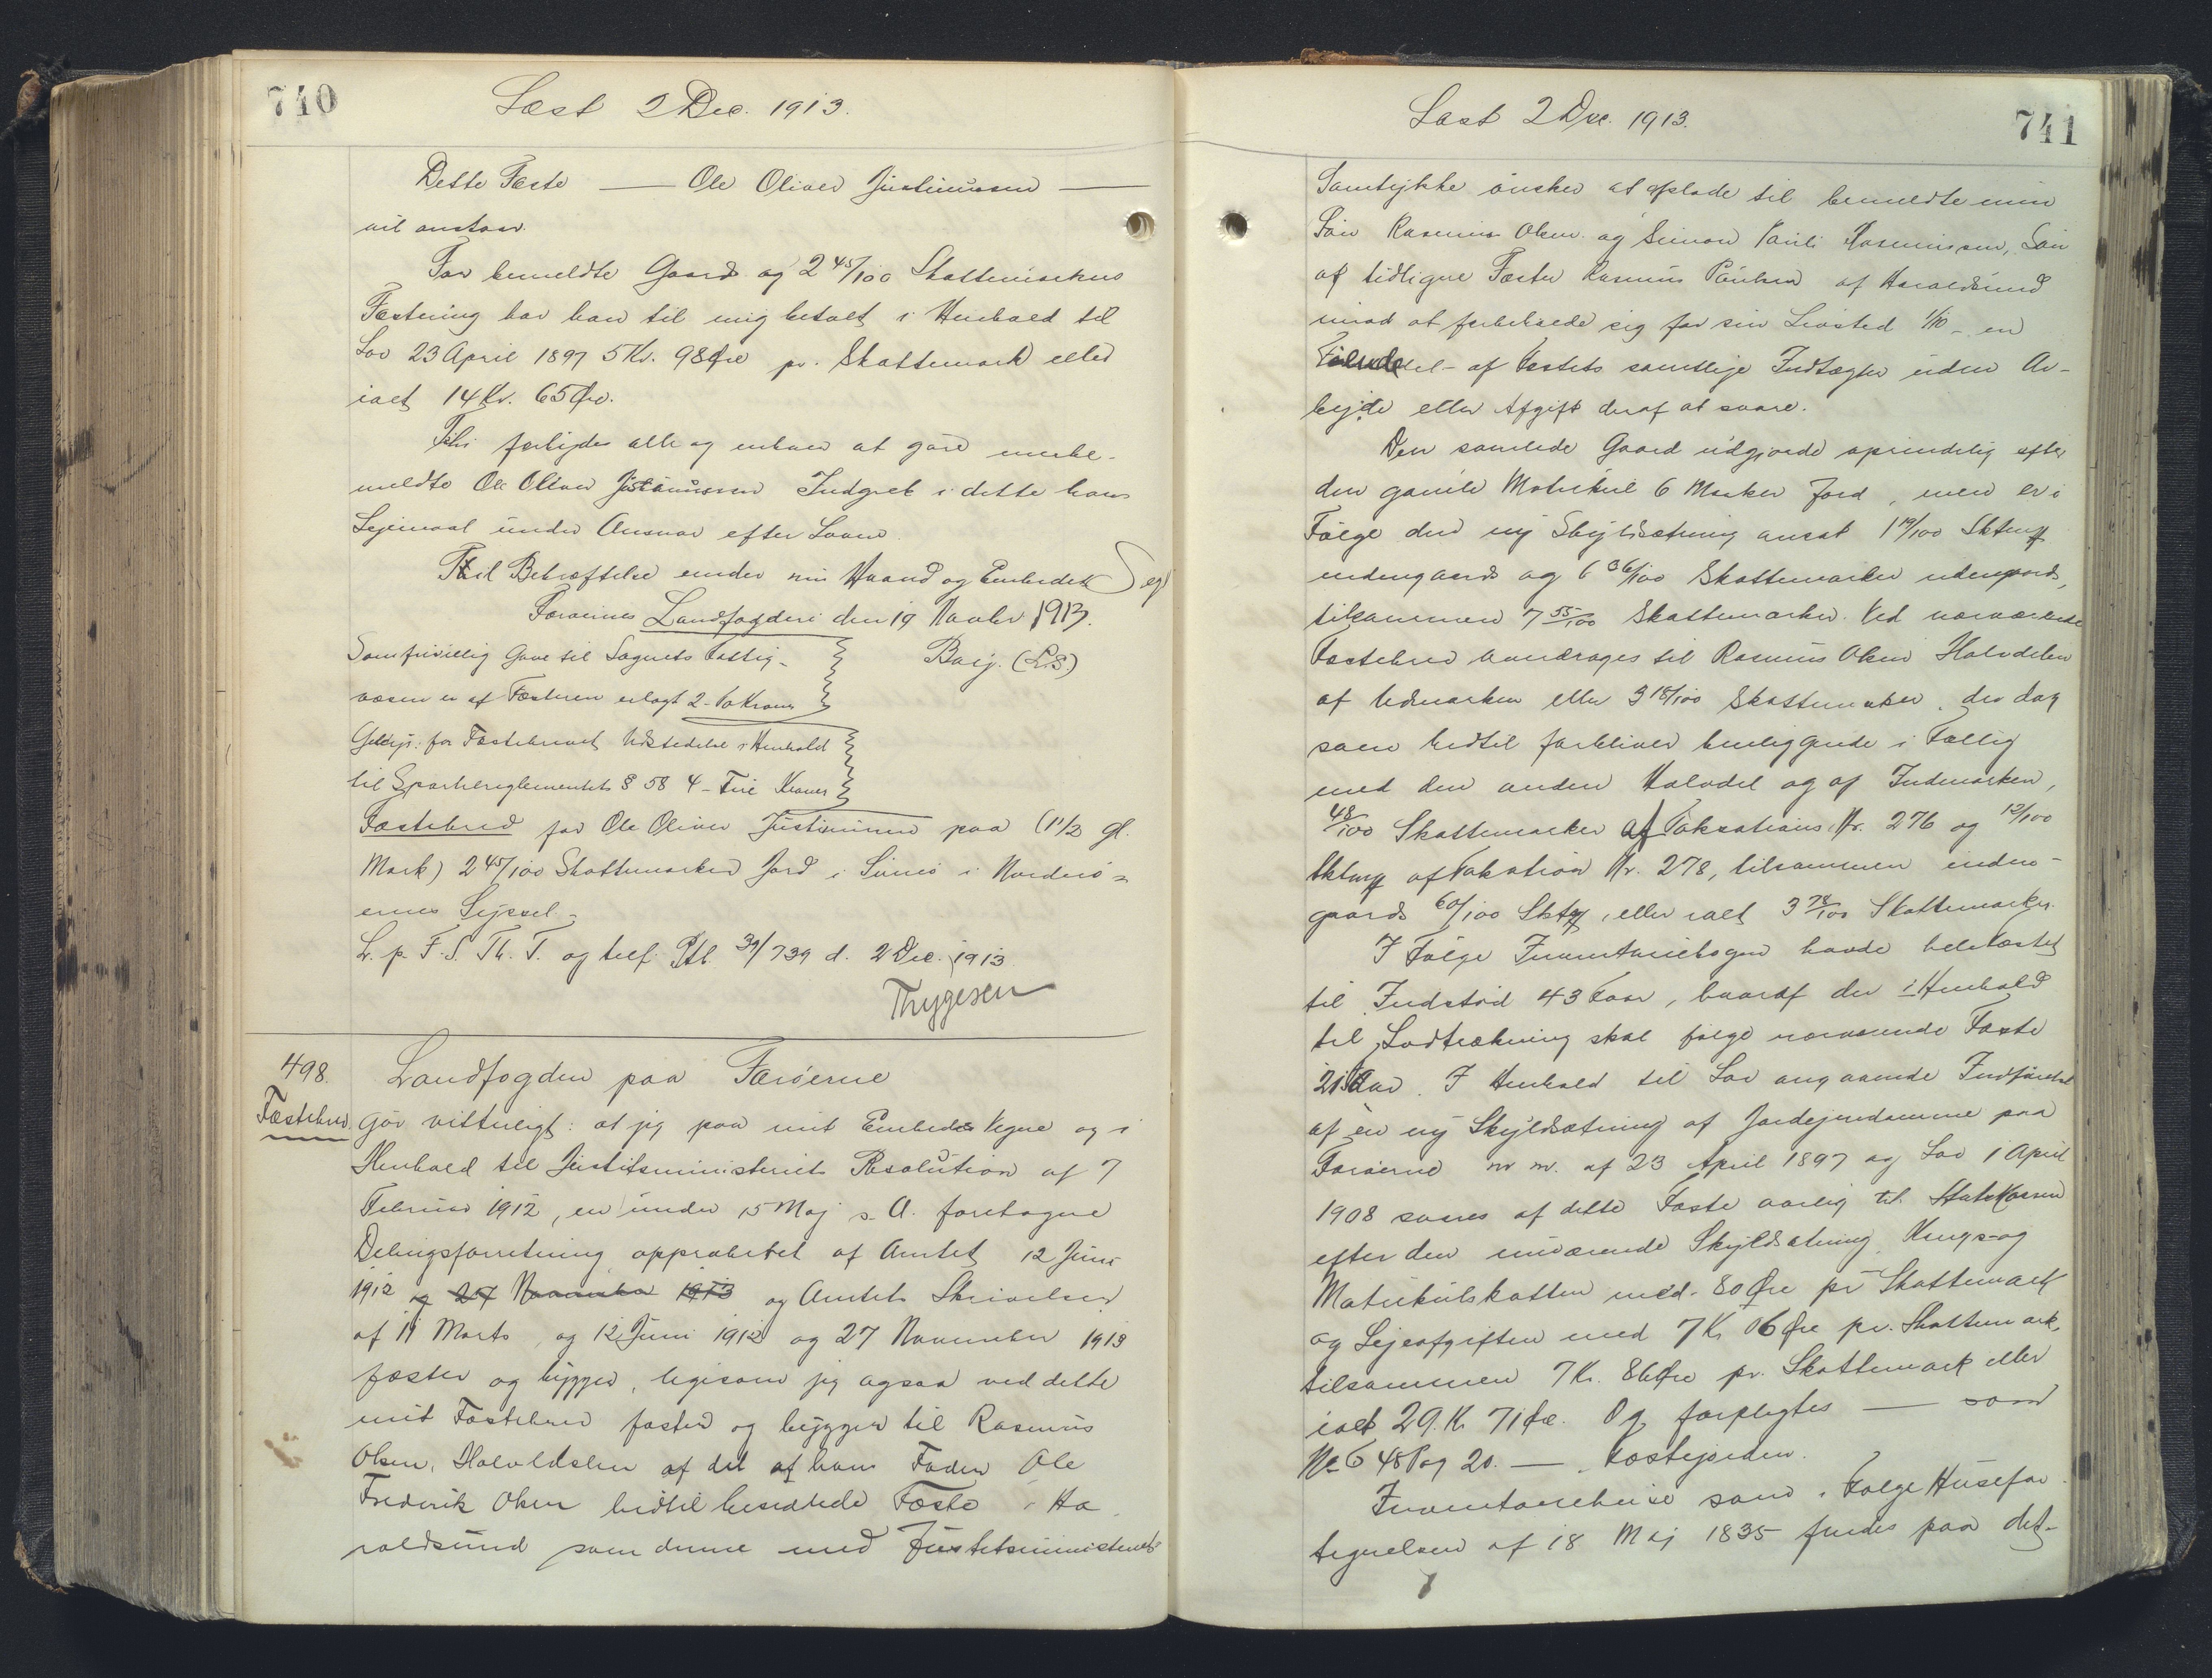 740
Læst 2 Dec. 1913.
Dette Fæste — Ole Oliver Justinussen —
vil anstaar.
For bemeldte Gaard og 2 45/100 Skattemarkers
Fæstning har han til mig betalt i Henhold til
Lov 23 April 1897 5 Kr. 98 Øre pr. Skattemark eller
ialt 14 Kr. 65 Øre.
Thi forbydes alle og enhver at gøre merbe-
meldte Ole Oliver Justinussen Indgreb i dette hans
Lejemaal under Ansvar efter Loven.
Til Bekræftelse under min Haand og Embedets Segl
Færøernes Landfogderi den 19 Novbr 1913.
Som frivillig Gave til Sognets Fattig-
væsen er af Fæsteren erlagt 2 - To Kroner
Bærj. (L.S)
Gebyr: for Fæstebrevets Udstedelse i Henhold
til Sportelreglementets § 58 4 - Fire Kroner
Fæstebrev for Ole Oliver Justinussen paa (1 1/2 gl.
Mark) 2 45/100 Skattemarker Jord i Svinø i Norderø-
ernes Syssel.
L. p. F. S. Th. T. og tilf. Ptl 39/739 d. 2 Dec. 1913
Thygesen
498.
Landfogden paa Færøerne
Fæstebrev.
Gør vitterligt: at jeg paa mit Embedes Vegne og i
Henhold til Justitsministeriets Resolution af 7
Februar 1912, en under 15 Maj s. A. foretagne
Delingsforretning approberet af Amtet 12 Juni
1912 og 27 November 1913 og Amtets Skrivelser
af 11 Marts og 12 Juni 1912 og 27 November 1913
fæster og bygger, ligesom jeg ogsaa ved dette
mit Fæstebrev fæster og bygger til Rasmus
Olsen, Halvdelen af det af hans Fader Ole
Frederik Olsen hidtil besiddede Fæste i Ha-
raldsund som denne med Justitsministeriets
741
Læst 2 Dec. 1913.
Samtykke ønsker at afstaade til bemeldte min
Søn Rasmus Olsen og Simon Pauli Rasmussen, Søn
af tidligere Fæster Rasmus Poulsen af Haraldsund
imod at forbeholde sig for sin Livstid 1/10 - en
Tiendedel - af Fæstets samtlige Indtægter uden Ar-
bejde eller Afgift deraf at svare.
Den samlede Gaard udgjorde oprindelig efter
den gamle Matrikul 6 Marker Jord, men er i
Følge den ny Skyldsætning ansat 1 19/100 Sktm
indengaards og 6 36/100 Skattemarker udengaards,
tilsammen 7 55/100 Skattemarker. Ved nærværende
Fæstebrev overdrages til Rasmus Olsen Halvdelen
af Udmarken eller 3 18/100 Skattemarker, der dog
som hidtil forbliver henliggende i Fællig
med den anden Halvdel og af Indmarken,
48/100 Skattemarker af Taksations Nr. 276 og 12/100
Sktm af Taksation Nr. 278, tilsammen inden-
gaards 60/100 Sktm, eller ialt 3 78/100 Skattemarker.
I Følge Inventariebogen havde hele Fæstet
til Indstød 43 Faar, hvoraf der i Henhold
til Lodtrækning skal følge nærværende Fæste
21 Faar. I Henhold til Lov angaaende Indførelse
af en ny Skyldsætning af Jordejendomme paa
Færøerne m m. af 23 April 1897 og Lov 1 April
1908 svares af dette Fæste aarlig til Statskassen
efter den nuværende Skyldsætning Konge- og
Matrikulskatten med 80 Øre pr Skattemark
og Lejeafgiften med 7 Kr. 06 Øre pr. Skattemark,
tilsammen 7 Kr. 86 Øre pr. Skattemark eller
ialt 29. Kr 71 Øre. Og forpligtes — som
No 6 48 Pag 20. — Fæstejorden.
Inventariehuse som i Følge Husefor-
tegnelsen af 18 Maj 1835 findes paa det-